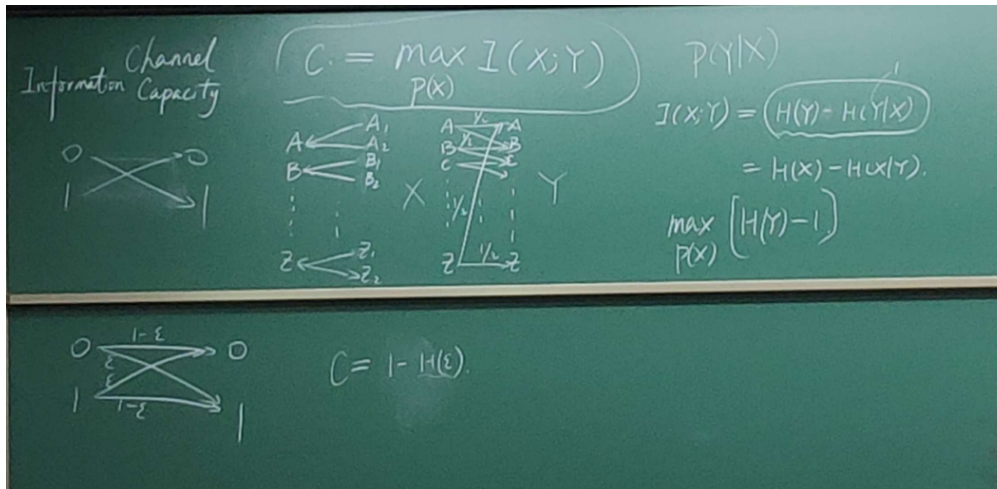 Channel
Information Capacity
C = max I(X;Y)
P(X)
P(Y|X)
1
I(X;Y) = H(Y) - H(Y|X)
= H(X) - H(X|Y).
max [H(Y)-1]
P(X)
0 0
1 1
A A1
A2
B B1
B2
Z Z1
Z2
X
A 1/2 A
B 1/2 B
C C
1/2
Z 1/2 Z
Y
0 1-ε 0
ε
ε
1 1-ε 1
C = 1 - H(ε).